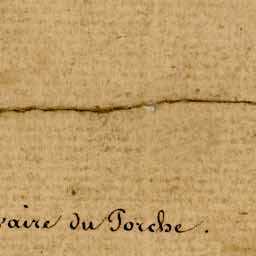 vaire du Porche.